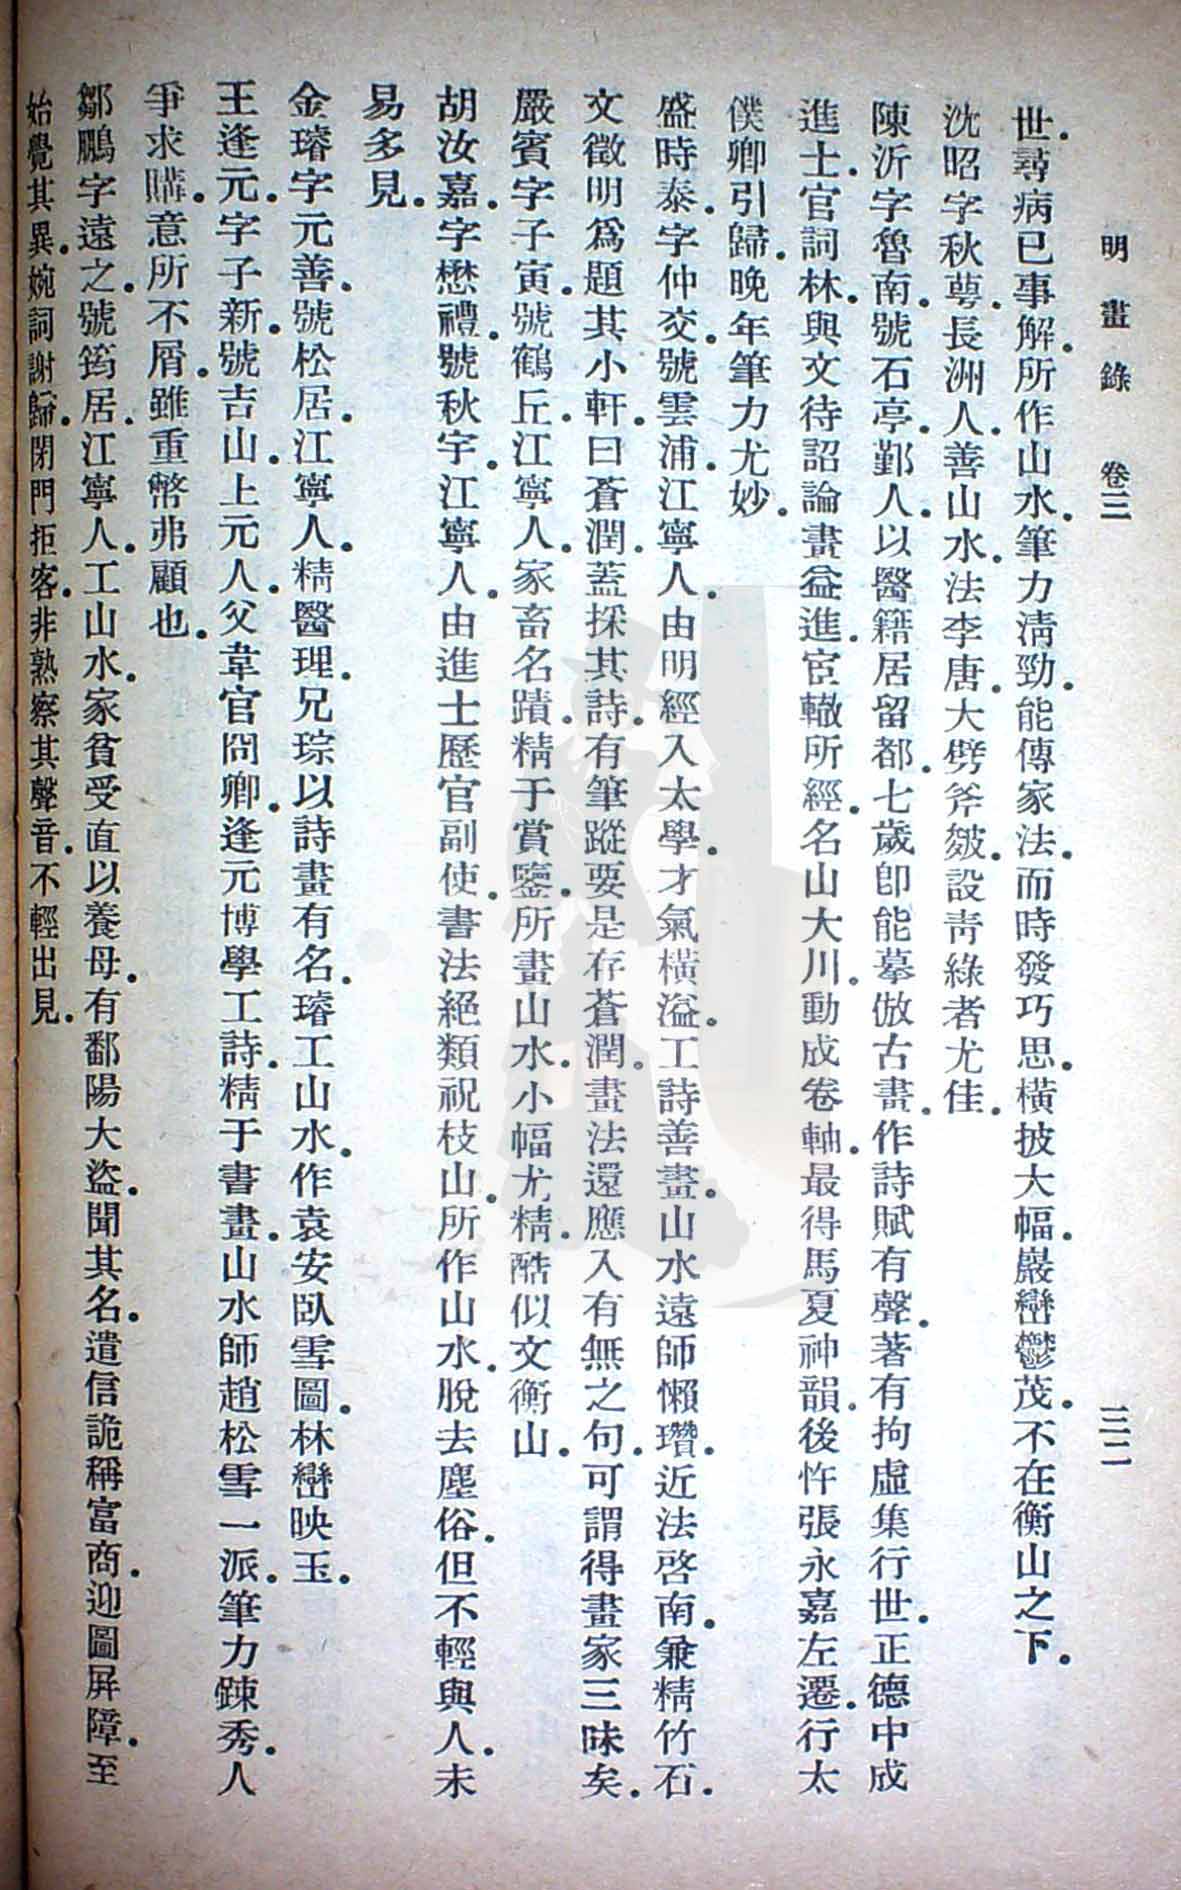 明畫錄 卷三 三二
世。尋病已事解。所作山水。筆力淸勁。能傳家法。而時發巧思。橫披大幅。巖巒鬱茂。不在衡山之下。
沈昭字秋萼。長洲人。善山水。法李唐。大劈斧皴。設靑綠者尤佳。
陳沂字魯南。號石亭。鄞人。以醫籍居留都。七歲卽能摹倣古畫。作詩賦有聲。著有拘虛集行世。正德中成
進士。官詞林。與文待詔論畫益進。宦轍所經。名山大川。動成卷軸。最得馬夏神韻。後忤張永嘉左遷。行太
僕卿引歸。晚年筆力尤妙。
盛時泰。字仲交。號雲浦。江寧人。由明經入太學。才氣橫溢。工詩善畫。山水遠師懶瓚。近法啓南。兼精竹石。
文徵明爲題其小軒。曰蒼潤。蓋採其詩。有筆蹤要是存蒼潤。畫法還應入有無之句。可謂得畫家三昧矣。
嚴賓字子寅。號鶴丘。江寧人。家畜名蹟。精于賞鑒。所畫山水。小幅尤精。酷似文衡山。
胡汝嘉。字懋禮。號秋宇。江寧人。由進士歷官副使。書法絕類祝枝山。所作山水。脫去塵俗。但不輕與人。未
易多見。
金璿字元善。號松居。江寧人。精醫理。兄琮以詩畫有名。璿工山水。作袁安臥雪圖。林巒映玉。
王逢元。字子新。號吉山。上元人。父韋官冏卿。逢元博學工詩。精于書畫。山水師趙松雪一派。筆力鍊秀。人
爭求購。意所不屑。雖重幣弗顧也。
鄒鵬字遠之。號筠居。江寧人。工山水。家貧受直以養母。有鄱陽大盜。聞其名。遣信詭稱富商。迎圖屛障。至
始覺其異。婉詞謝歸。閉門拒客。非熟察其聲音。不輕出見。